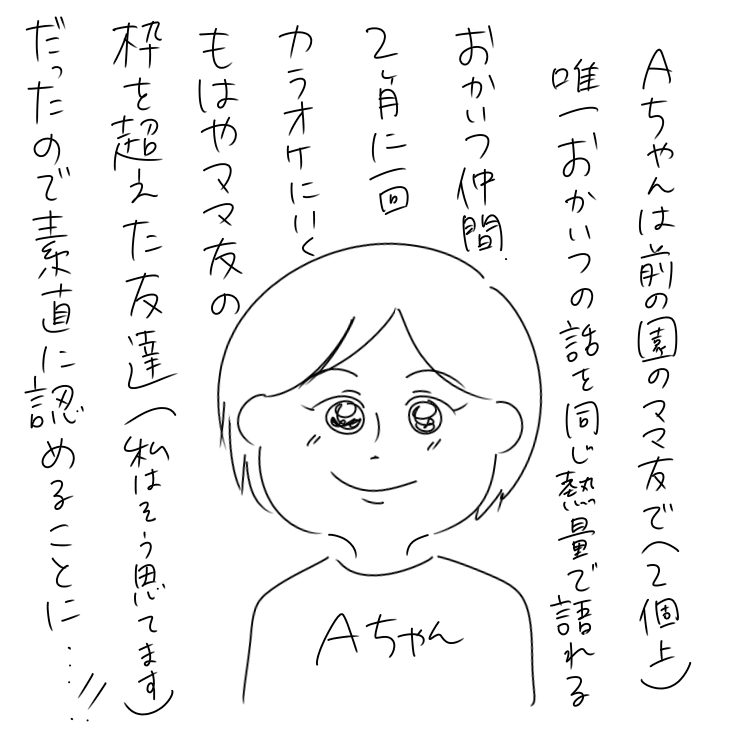 Aちゃんは前の園のママ友で(2個上)
唯一おかいつの話を同じ熱量で語れる
おかいつ仲間.
2ヶ月に一回
カラオケにいく
もはやママ友の
枠を超えた友達(私はそう思てます)
だったので素直に認めることに…!!
Aちゃん